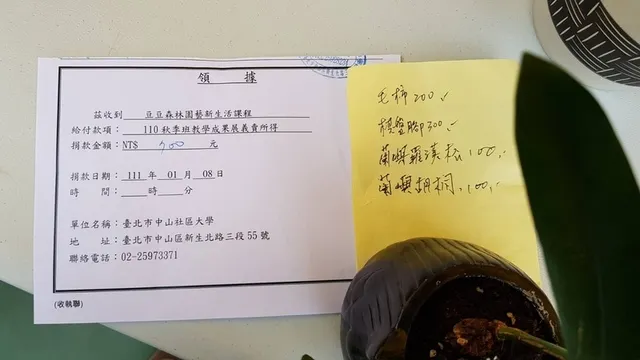 領 據
茲收到 豆豆森林園藝新生活課程
給付款項： 110秋季班教學成果展義賣所得
捐款金額：NT$ 700 元
捐款日期： 111 年 01 月 08 日
時 間： 時 分
單位名稱：臺北市中山社區大學
地 址：臺北市中山區新生北路三段55號
聯絡電話：02-25973371
(收執聯)
毛柿 200 ✓
棋盤腳 300 ✓
蘭嶼羅漢松 100 ✓
蘭嶼胡桐 100 ✓